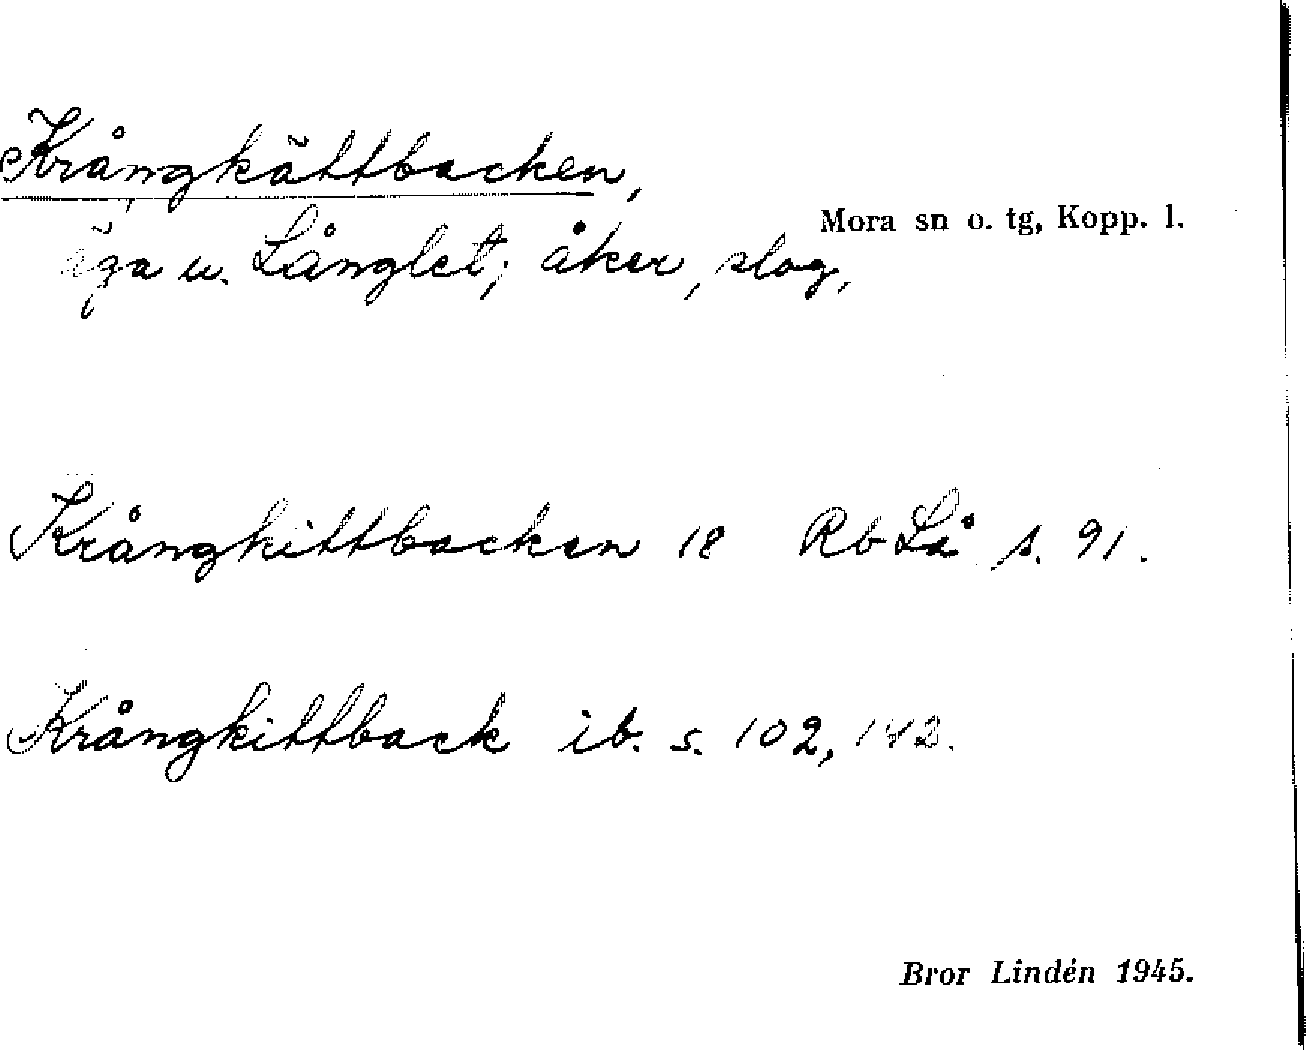 Krångkättbacken,
Mora sn o. tg, Kopp. l.
äga u. Långlet; åker, slog,
Krångkittbacken 18 Rb Lå s. 91.
Krångkittback ib. s. 102, 142.
Bror Lindén 1945.